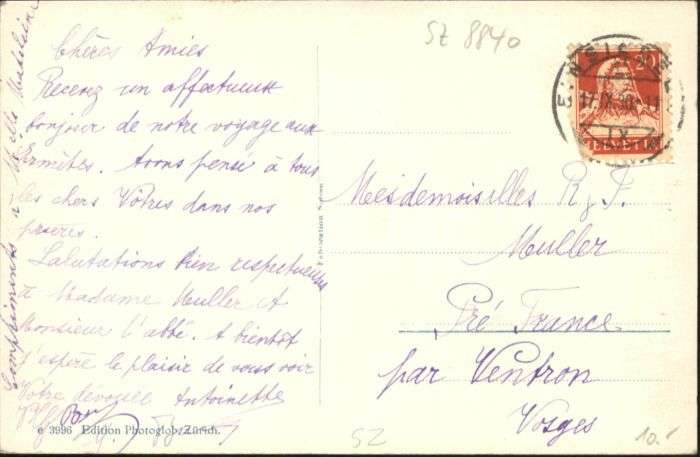 SZ 8840
Chères Amies
Recevez un affectueux
bonjour de notre voyage aux
Ermites. Avons pensé à tous
les chers Vôtres dans nos
prières.
Salutations bien respectueuses
à Madame Muller et
Monsieur l'abbé. A bientôt
j'espère le plaisir de vous voir
Votre dévouée Antoinette
Compliments à Mlle Madeleine
e 3996 Edition Photoglob, Zürich.
20
EINSIEDELN
17.IX.30
HELVETIA
Mesdemoiselles R. & F.
Muller
Pré France
par Ventron
Vosges
SZ
10.-